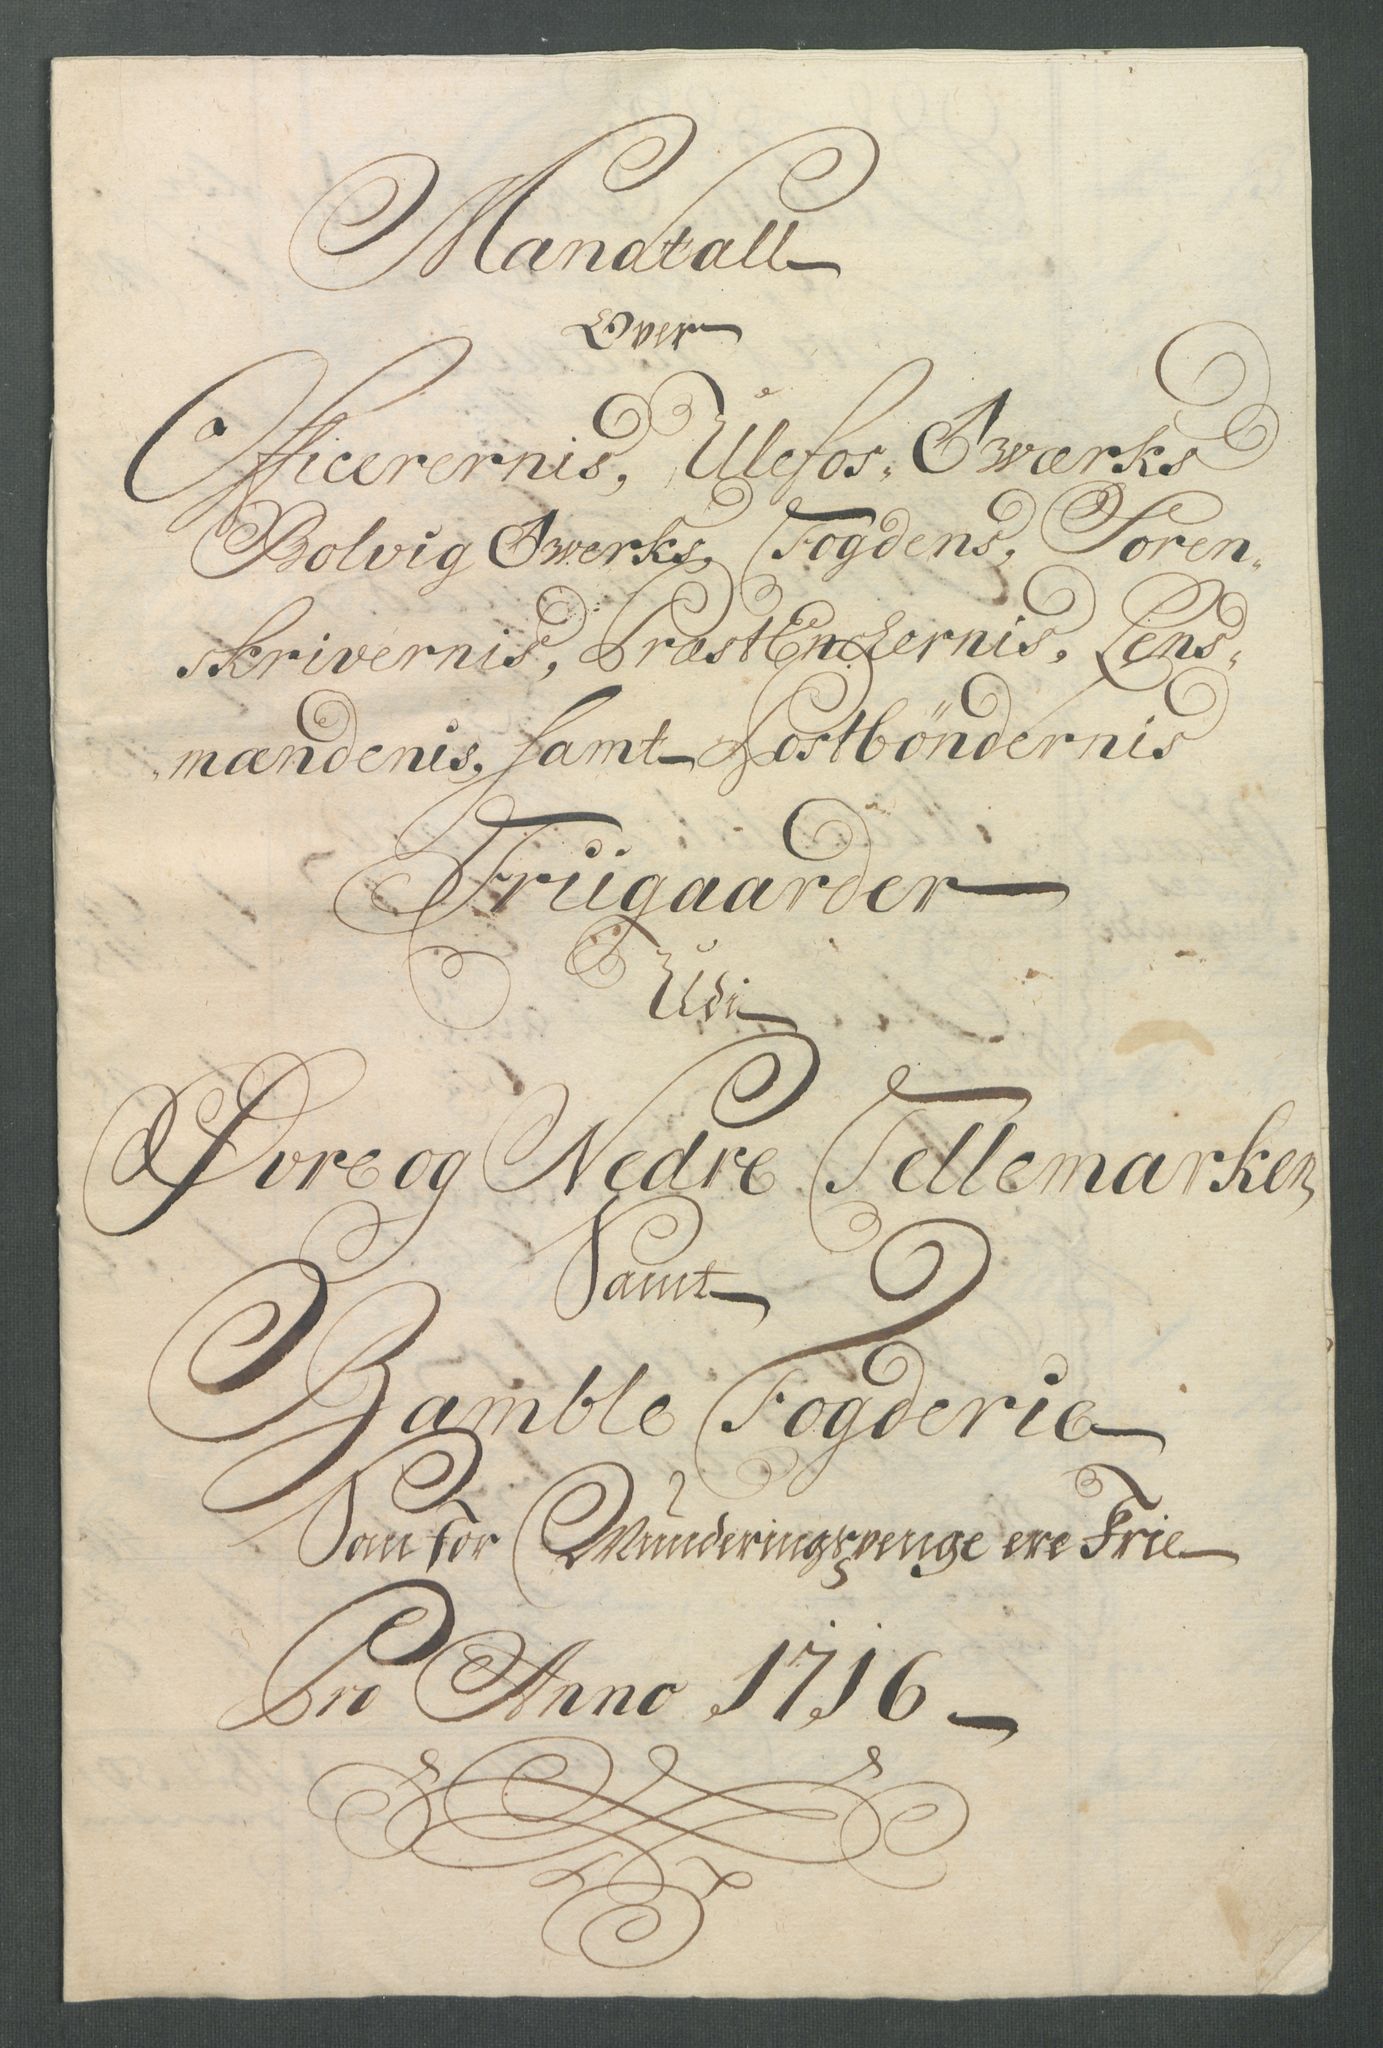 Mandtall
Over
Officerernis, Ulefos Jwærks
Bolvig Jwerks, Fogdens, Soren-
skrivernis, PræstEnckernis, Lens-
mændenis, samt Postböndernis
Friigaarder
Udi
Øvre og Nedre Tellemarken
Samt
Bamble Fogderie
Som for Munderingspenge ere Frie
Pro Anno 1716